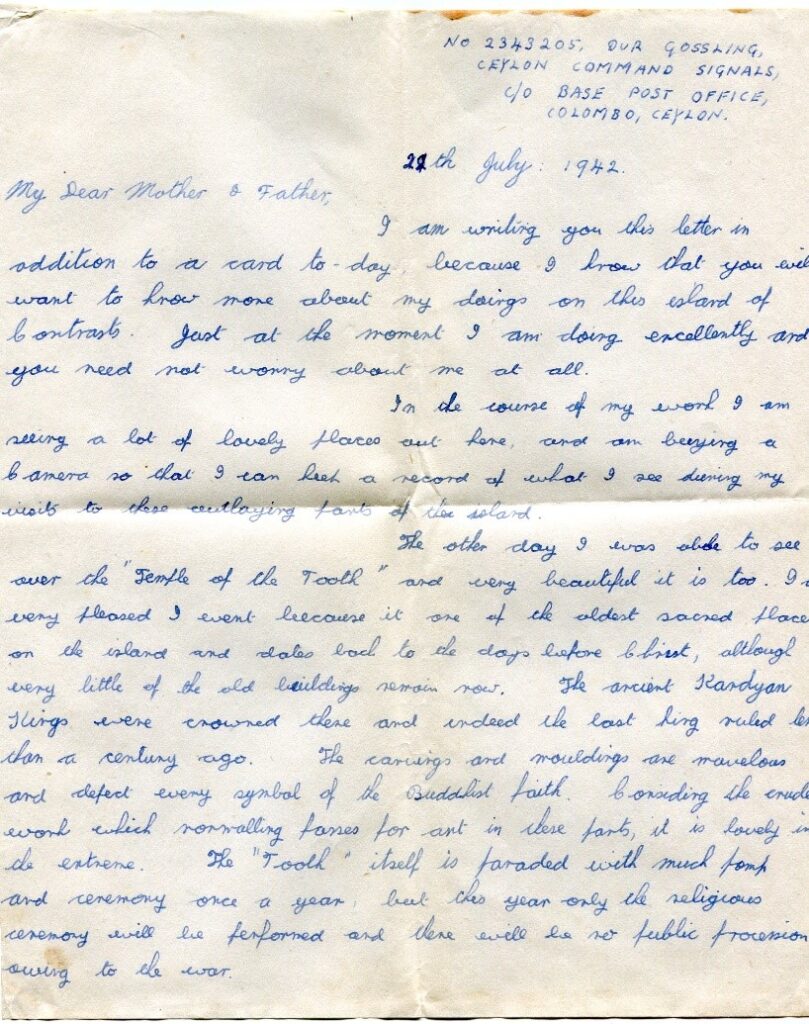 No 2343205, DVR GOSSLING,
CEYLON COMMAND SIGNALS,
C/O BASE POST OFFICE,
COLOMBO, CEYLON.
th July: 1942.
My Dear Mother & Father,
I am writing you this letter in
addition to a card to-day, because I know that you wil
want to know more about my doings on this island of
Contrasts. Just at the moment I am doing excellently and
you need not worry about me at all.
In the course of my work I am
seeing a lot of lovely places out here, and am buying a
Camera so that I can keep a record of what I see during my
visits to these outlaying parts of the island.
The other day I was able to see
over the "Temple of the Tooth" and very beautiful it is too. I
very pleased I went because it one of the oldest sacred place
on the island and dates back to the days before Christ, although
very little of the old buildings remain now. The ancient Kandyan
Kings were crowned there and indeed the last king ruled le
than a century ago. The carvings and mouldings are mavelous
and defect every symbol of the Buddhist faith. Considing the crude
work which normalling passes for art in these parts, it is lovely in
the extreme. The "Tooth" itself is paraded with much pomp
and ceremony once a year, but this year only the religious
ceremony will be performed and there will be no public procession
owing to the war.